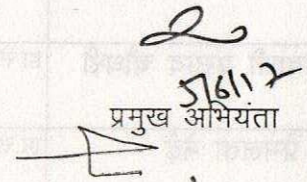 5/6/17
प्रमुख अभियंता